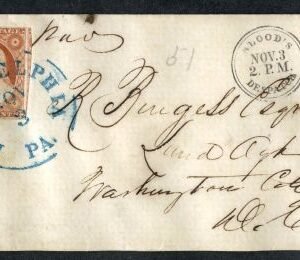 paid
51
BLOOD'S
NOV.3
2. P.M.
DESPATCH
DELPHIA
NOV
3
PA.
R Burgess Esqr
Land Agt
Washington City
D. C.